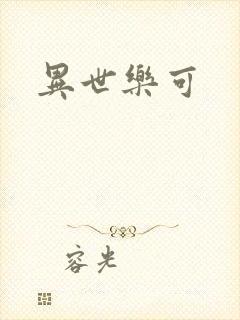 異世樂可
容光